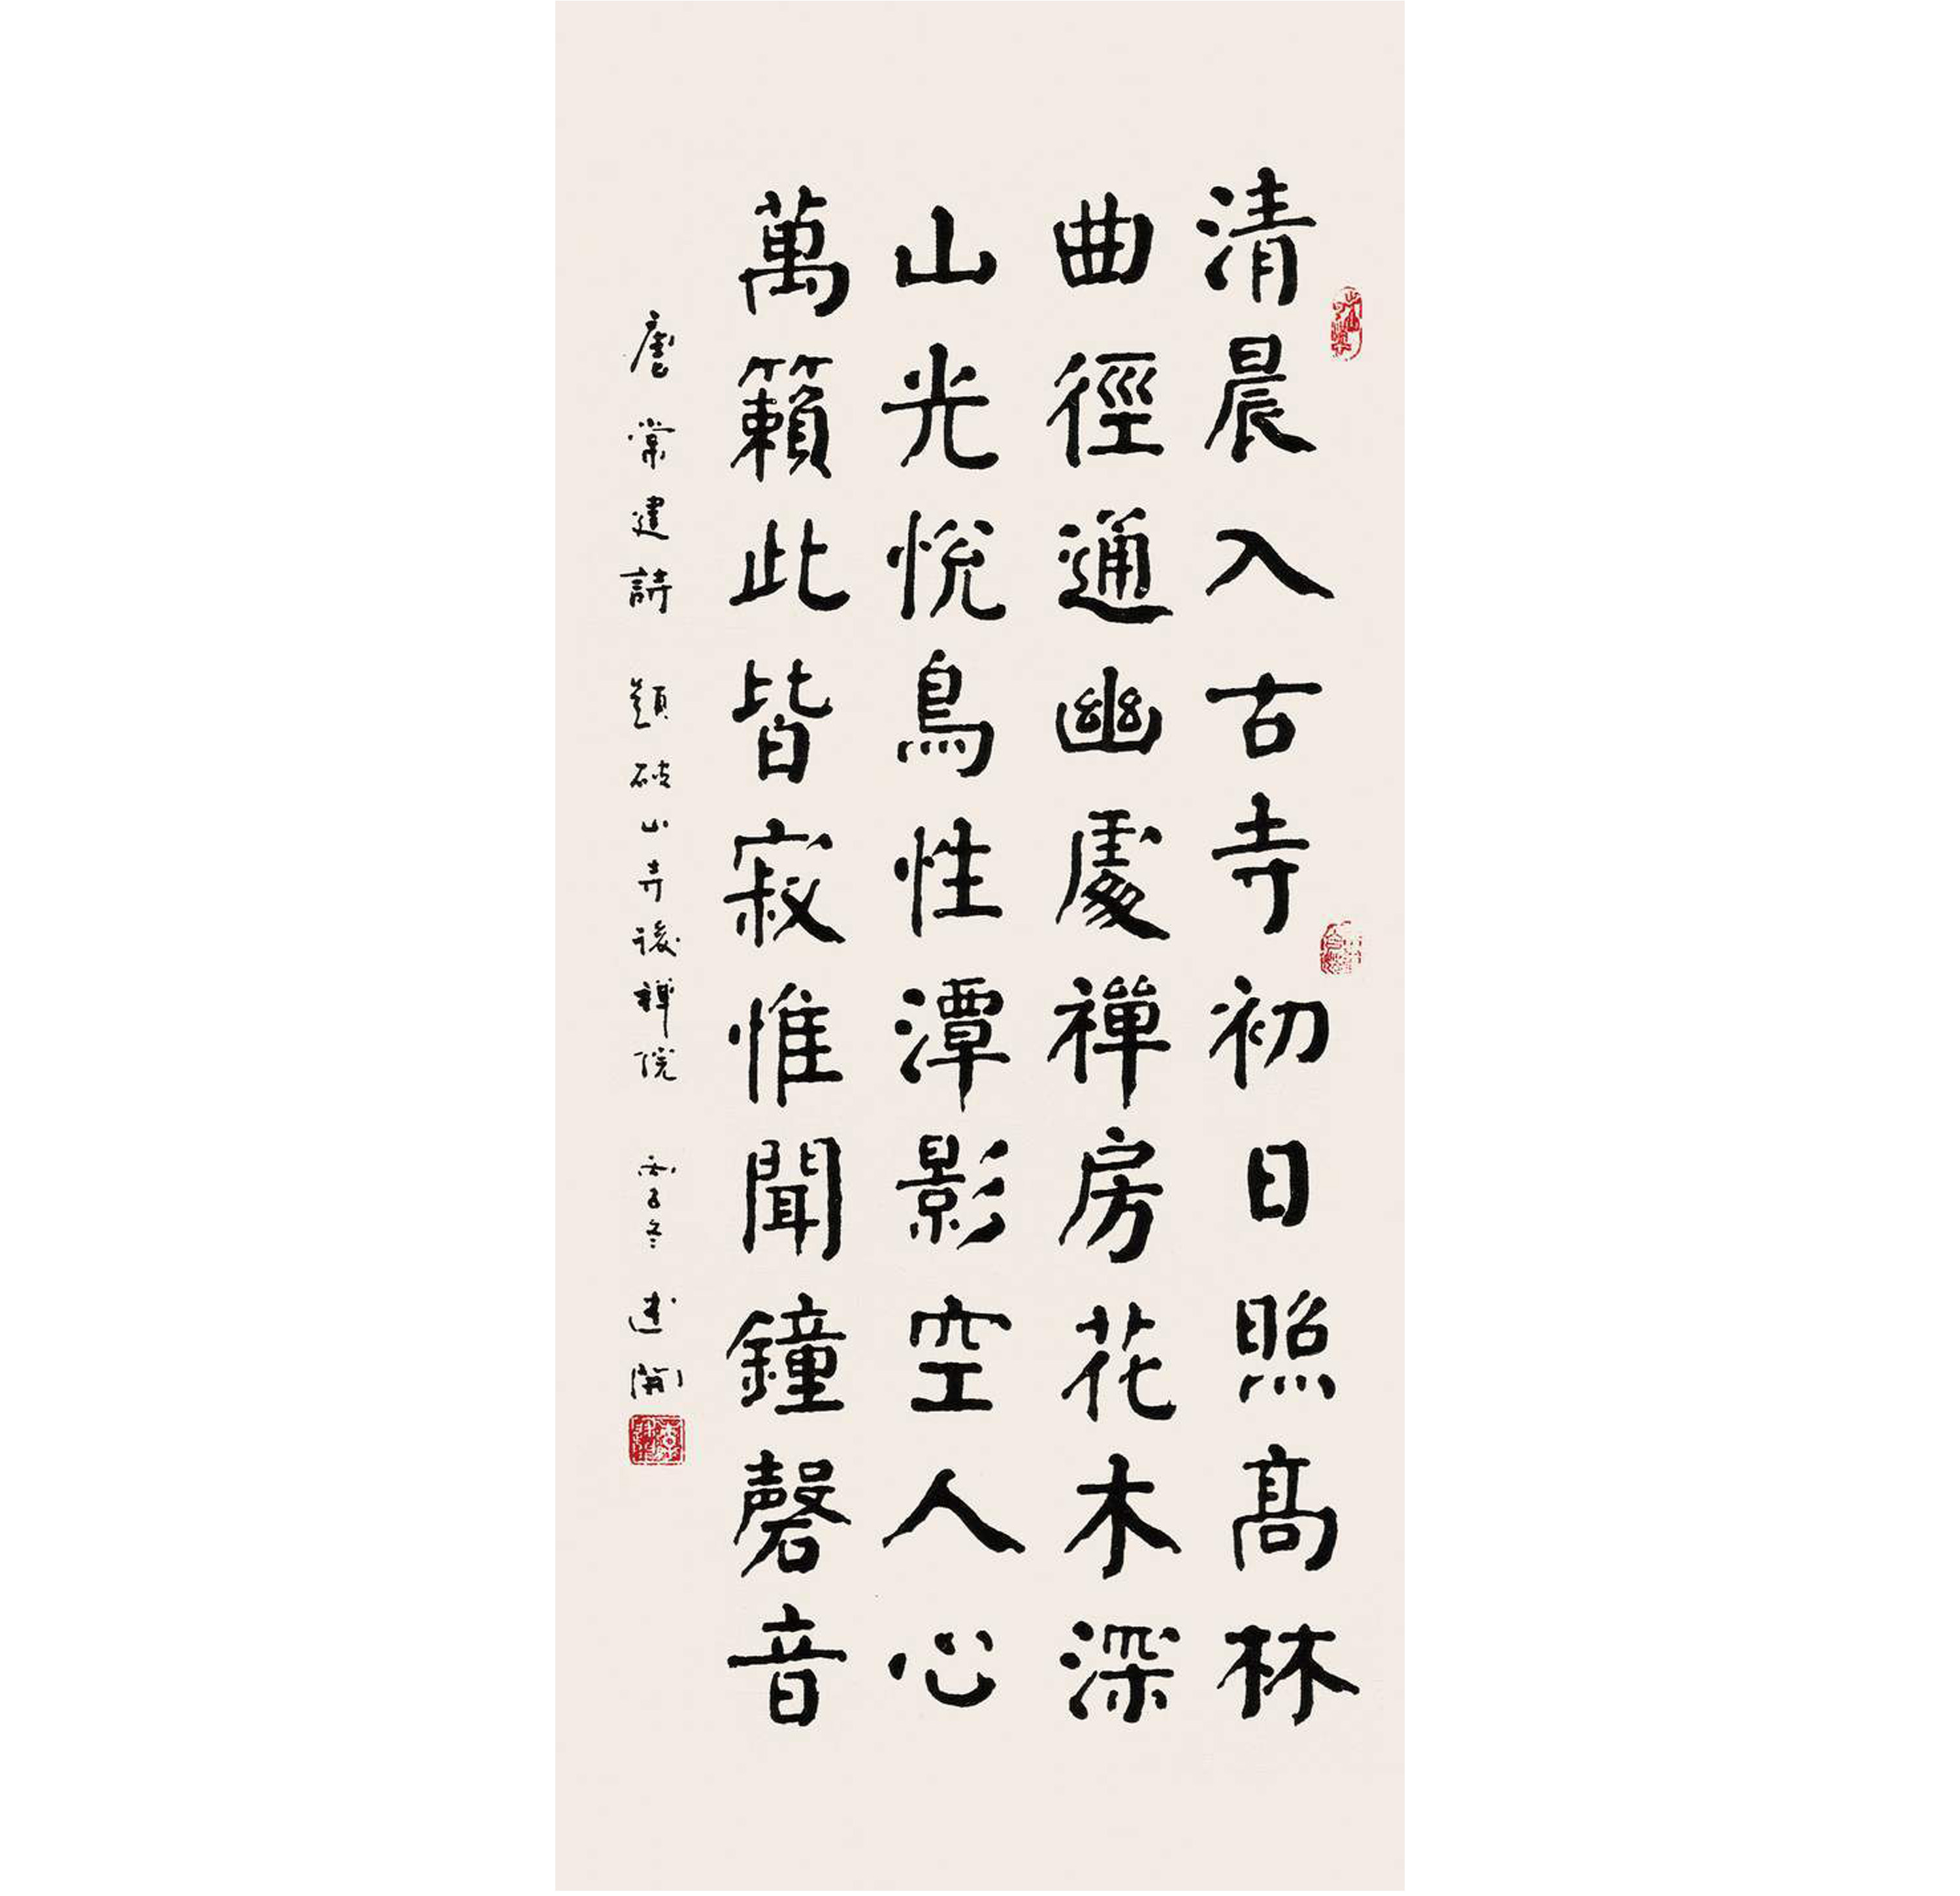 清晨入古寺初日照高林
曲徑通幽處禪房花木深
山光悅鳥性潭影空人心
萬籟此皆寂惟聞鐘磬音
唐常建詩 題破山寺後禪院 丙子冬 述開